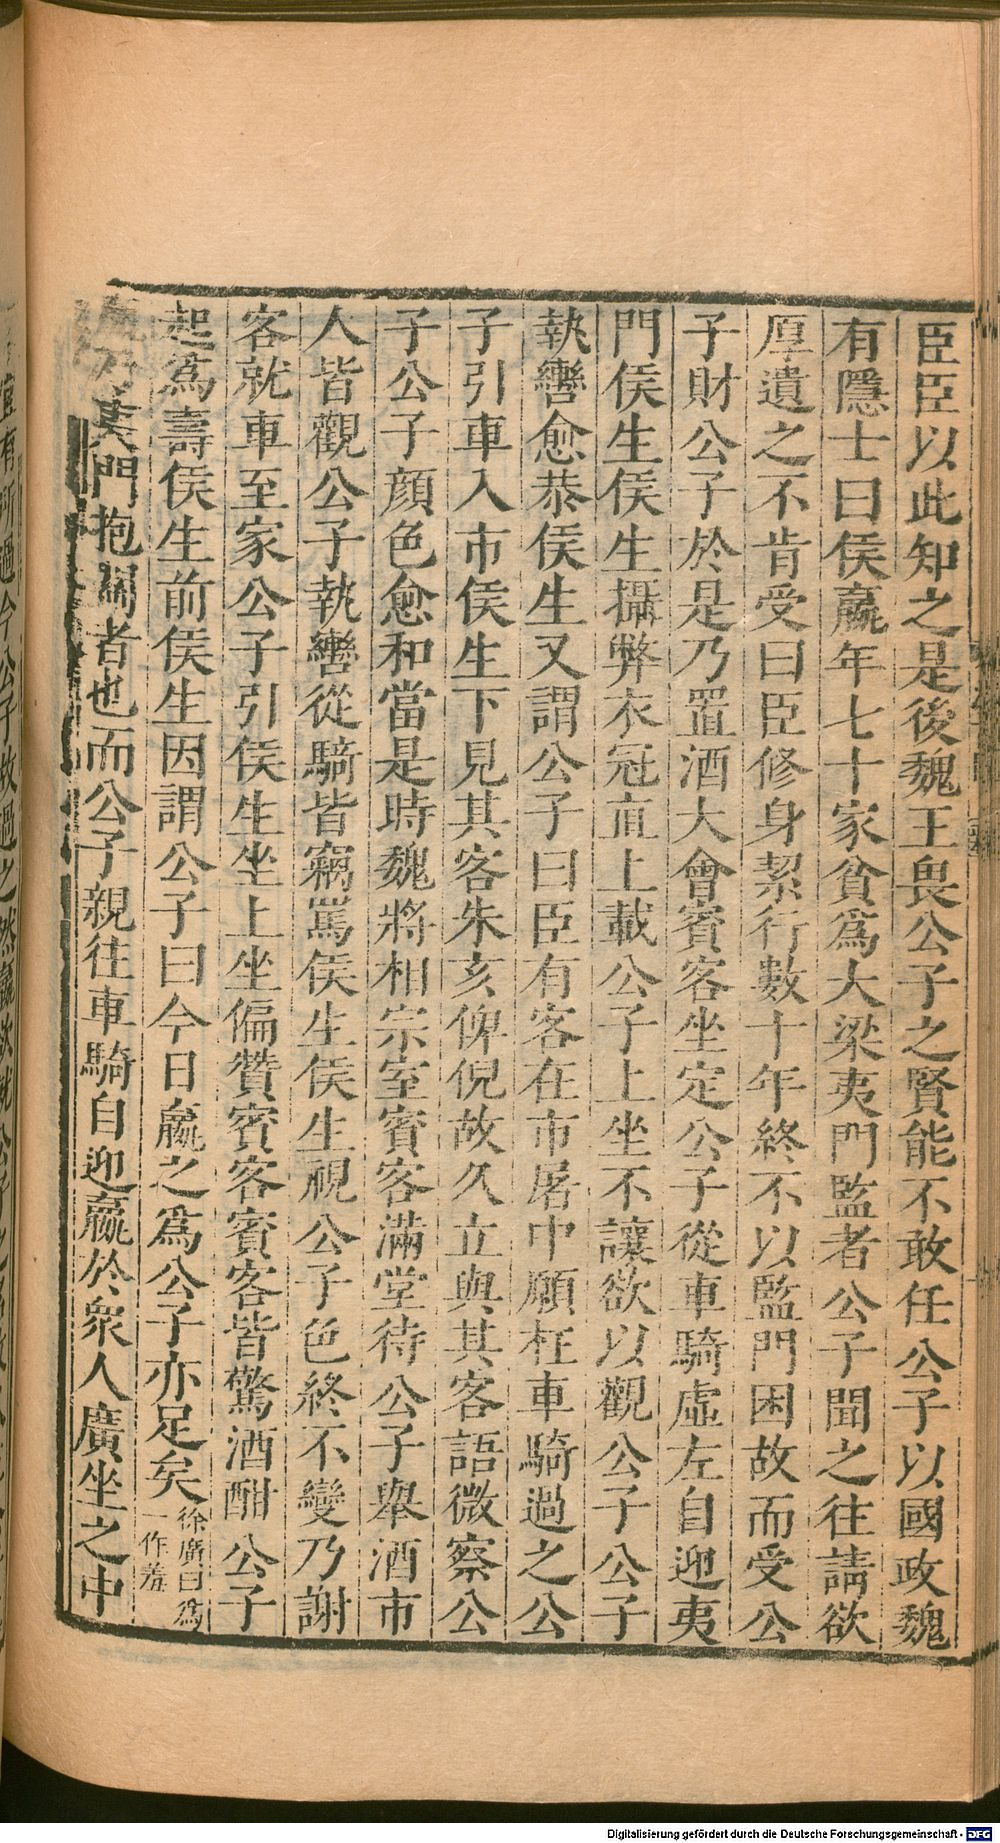 臣臣以此知之是後魏王畏公子之賢能不敢任公子以國政魏
有隱士曰侯嬴年七十家貧爲大梁夷門監者公子聞之往請欲
厚遺之不肯受曰臣修身絜行數十年終不以監門困故而受公
子財公子於是乃置酒大會賓客坐定公子從車騎虛左自迎夷
門侯生侯生攝弊衣冠直上載公子上坐不讓欲以觀公子公子
執轡愈恭侯生又謂公子曰臣有客在市屠中願枉車騎過之公
子引車入市侯生下見其客朱亥俾倪故久立與其客語微察公
子公子顔色愈和當是時魏將相宗室賓客滿堂待公子舉酒市
人皆觀公子執轡從騎皆竊罵侯生侯生視公子色終不變乃謝
客就車至家公子引侯生坐上坐偏贊賓客賓客皆驚酒酣公子
起爲壽侯生前侯生因謂公子曰今日嬴之爲公子亦足矣徐廣曰爲一作羞
夷門抱關者也而公子親往車騎自迎嬴於衆人廣坐之中
宜有所過今公子故過之然嬴欲就公子之名故
Digitalisierung gefördert durch die Deutsche Forschungsgemeinschaft - DFG